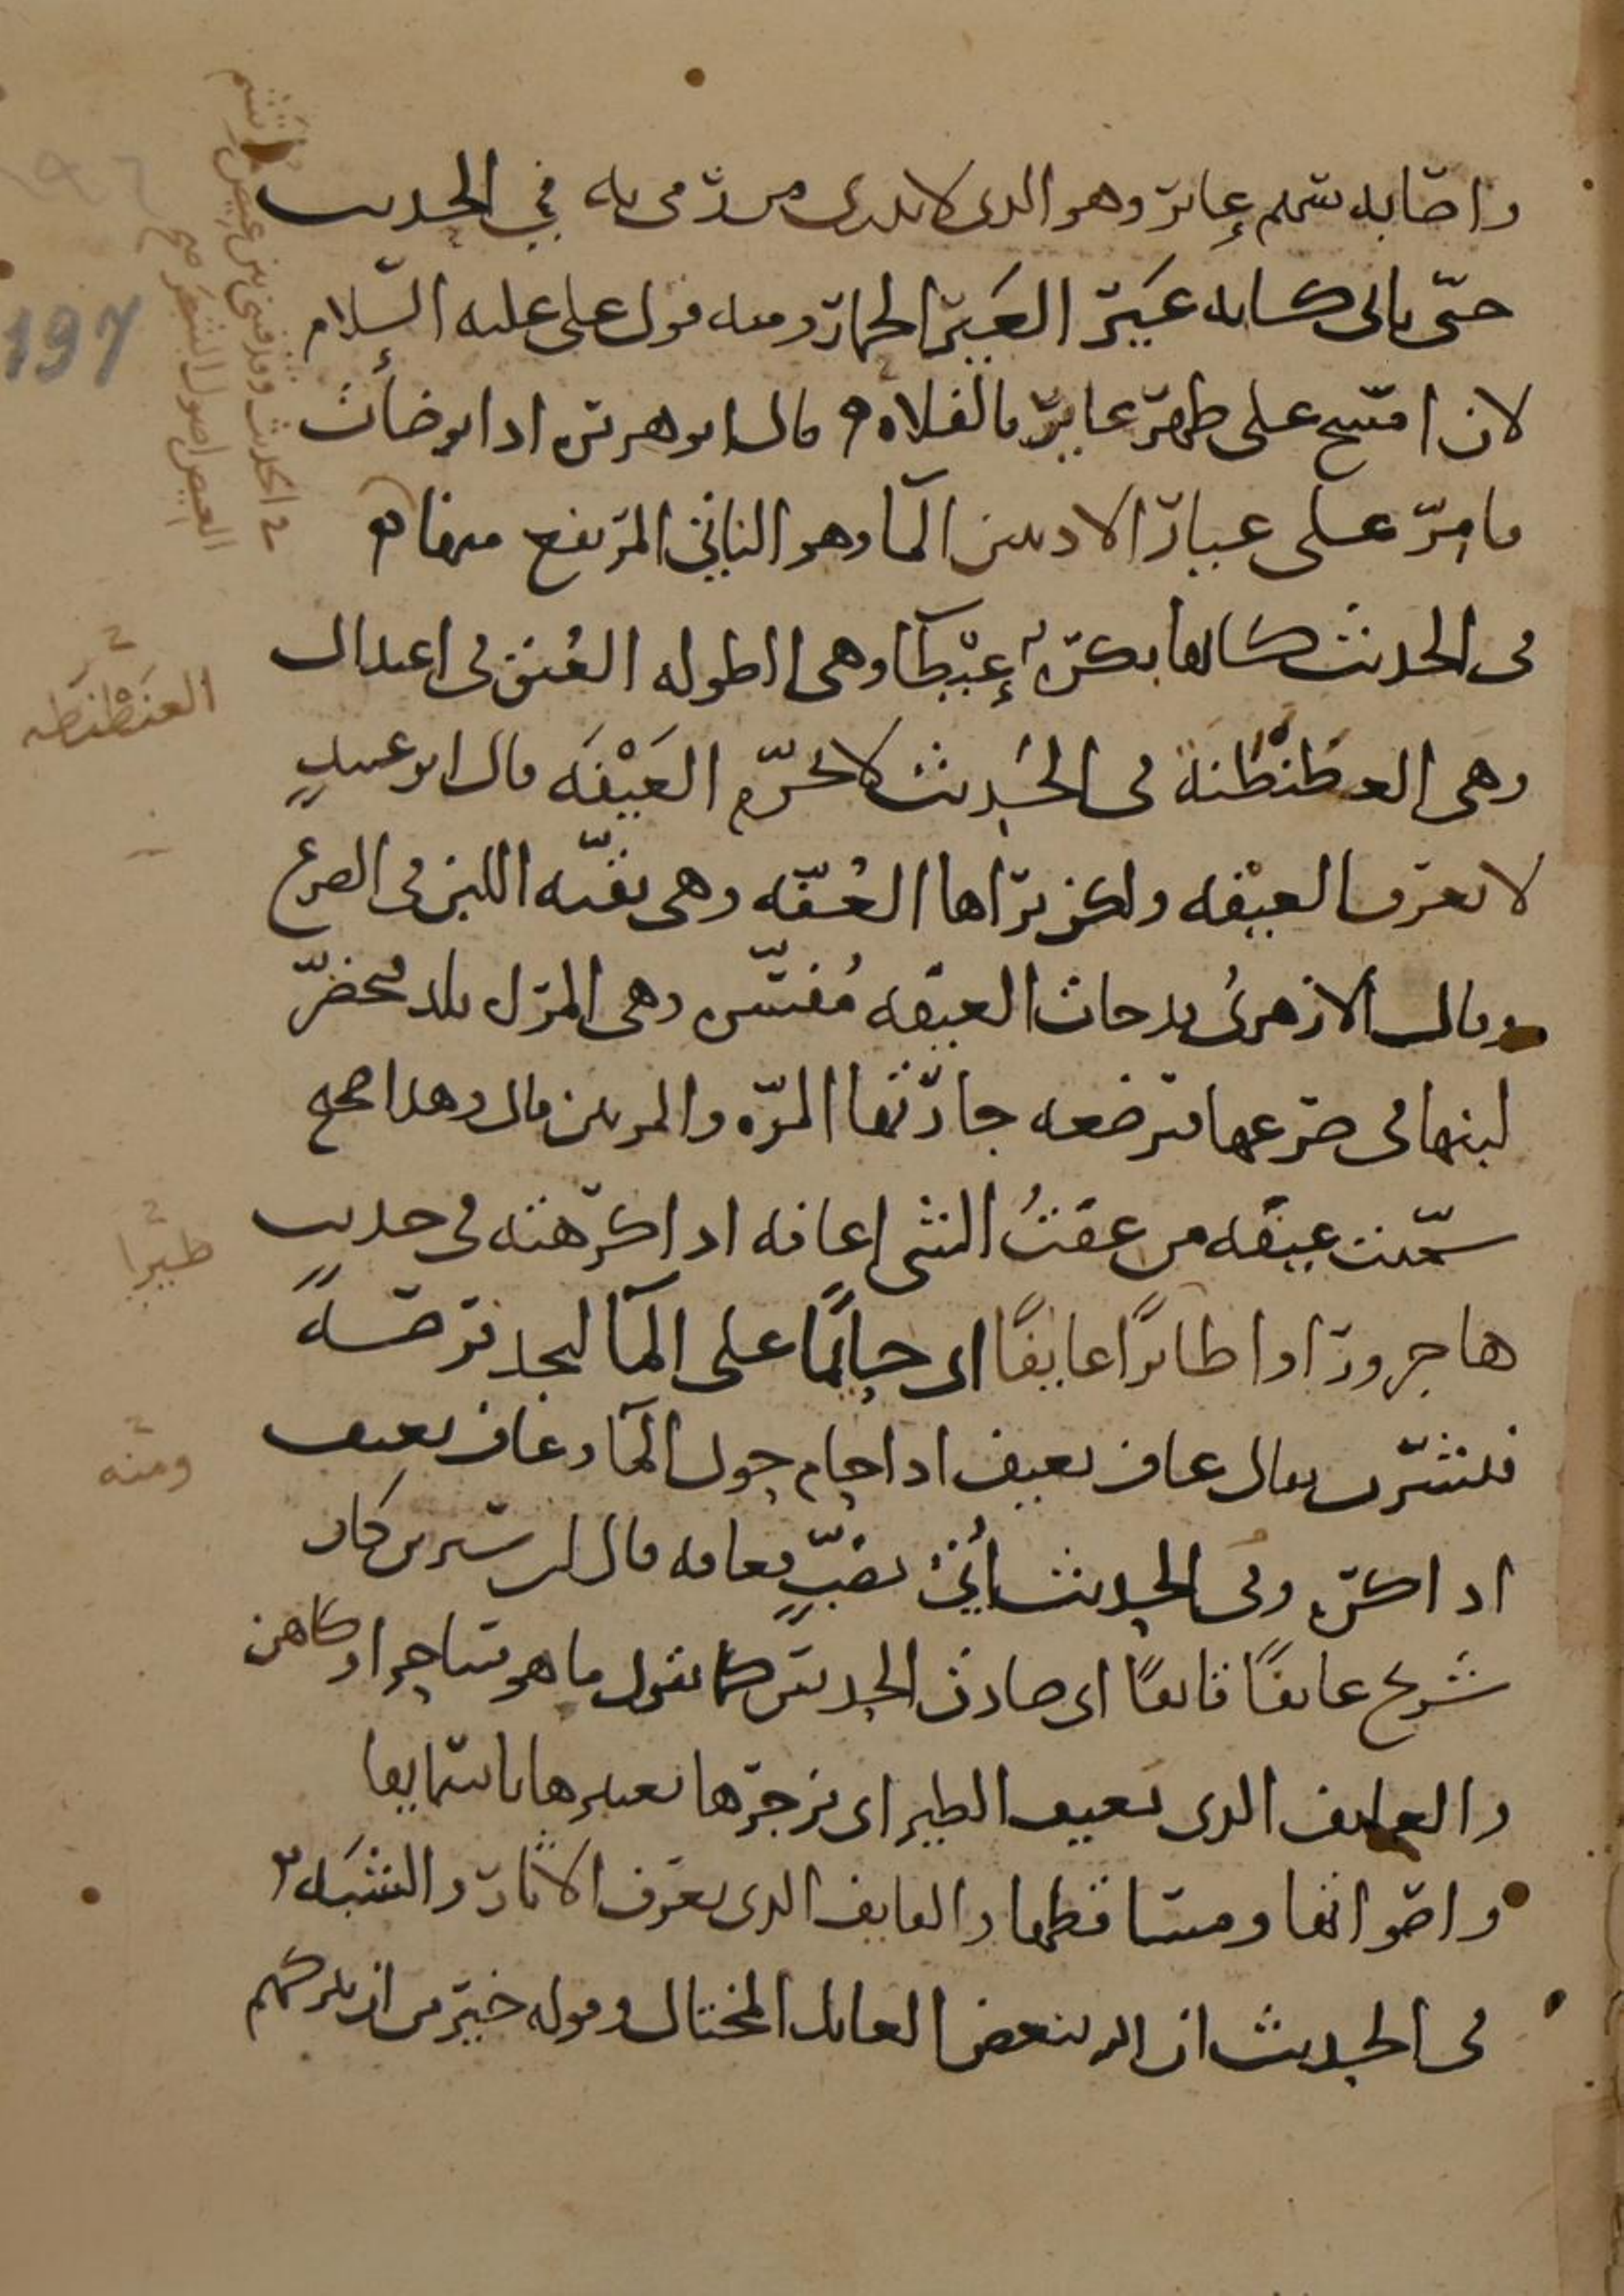 واصابه سهم عاير وهو الذى لا يدرى من رمى به في الحديث
حتى يالى كانه عير العير الحمار ومنه قول على عليه السلام
لان امسح على ظهر عاير بالفلاه قال ابو هريره اذا توضأت
فامر على عيار الاذنين الما وهو الناتئ المرتفع منها
فى الحديث كانها بكره عيطا وهى الطويله العنق فى اعتدال
وهى العطنطنة فى الحديث لا تحرم العيفه قال ابو عبيد
لا نعرف العيفه ولكن نراها العفه وهى بقيه اللبن فى الضرع
وقال الازهرى قد جات العيفه مفسره وهى المراه تلد فيحضر
لبنها فى ضرعها فترضعه جارتها المره والمرتين قال وهذا صحيح
سميت عيفه من عفت الشى اعافه اذا كرهته فى حديث
هاجر وراوا طائرا عايفا اى حايما على الما ليجد فرصة
فيشرب يقال عاف يعيف اذا حام حول الما وعاف يعيف
اذا كره وفى الحديث أتى بضب فعافه قال ابن سيرين كان
شريح عايفا قايفا اى صادق الحديث كما تقول ما هو ساحر او كاهن
والعايف الذى يعيف الطير اى يزجرها يعتبرها باسمايها
واصواتها ومساقطها والقايف الذى يعرف الاثار والشبه
فى الحديث ان الله يبغض العايل المختال وقوله خير من ان يتركهم
فى الحديث
العيص اصول الشجر صح
العنطنطه
طيرا
ومنه
197